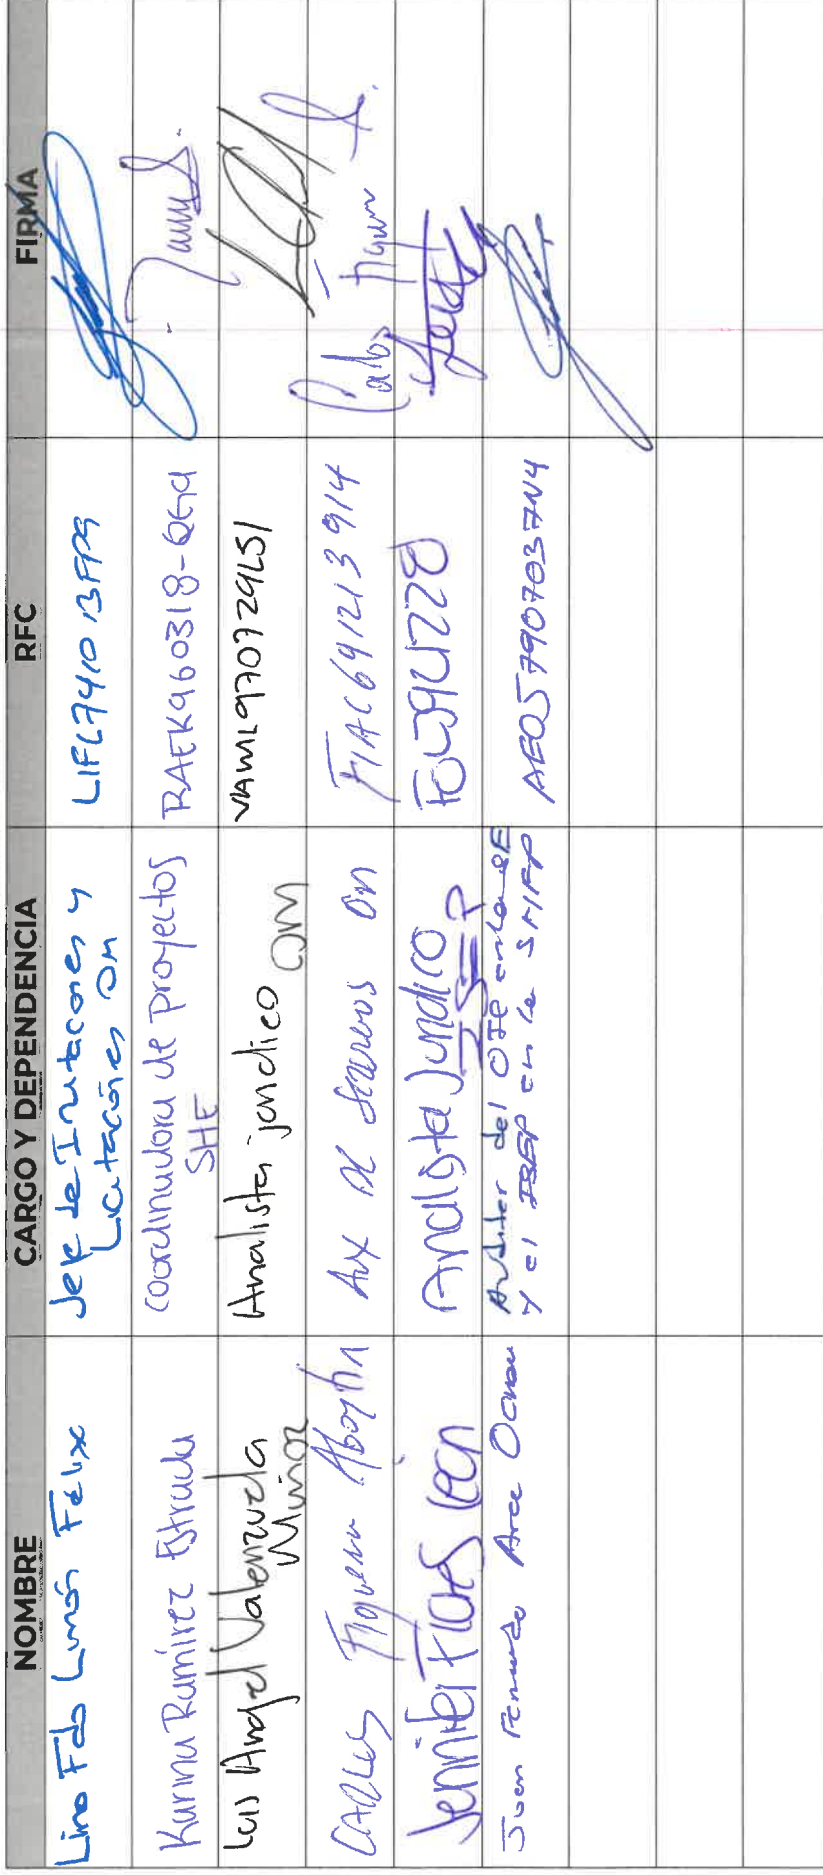 NOMBRE CARGO Y DEPENDENCIA RFC FIRMA
Lino Fdo Limón Félix Jefe de Invitaciones y Licitaciones OM LIFL741013FP9
Karina Ramírez Estrada Coordinadora de proyectos SHE RAEK960318-QG9
Luis Angel Valenzuela Muñoz Analista jurídico OM VAML970729LS1
CARLOS Figueroa Aux DE Servicios OM FIAC691213914 Carlos Figueroa
Jennifer Flores León Analista Jurídico ISEP FOLJ941228
Juan Fernando Arce Auditor del OTE en la SE y el ISEP en la SHFP AEOJ7907037N4